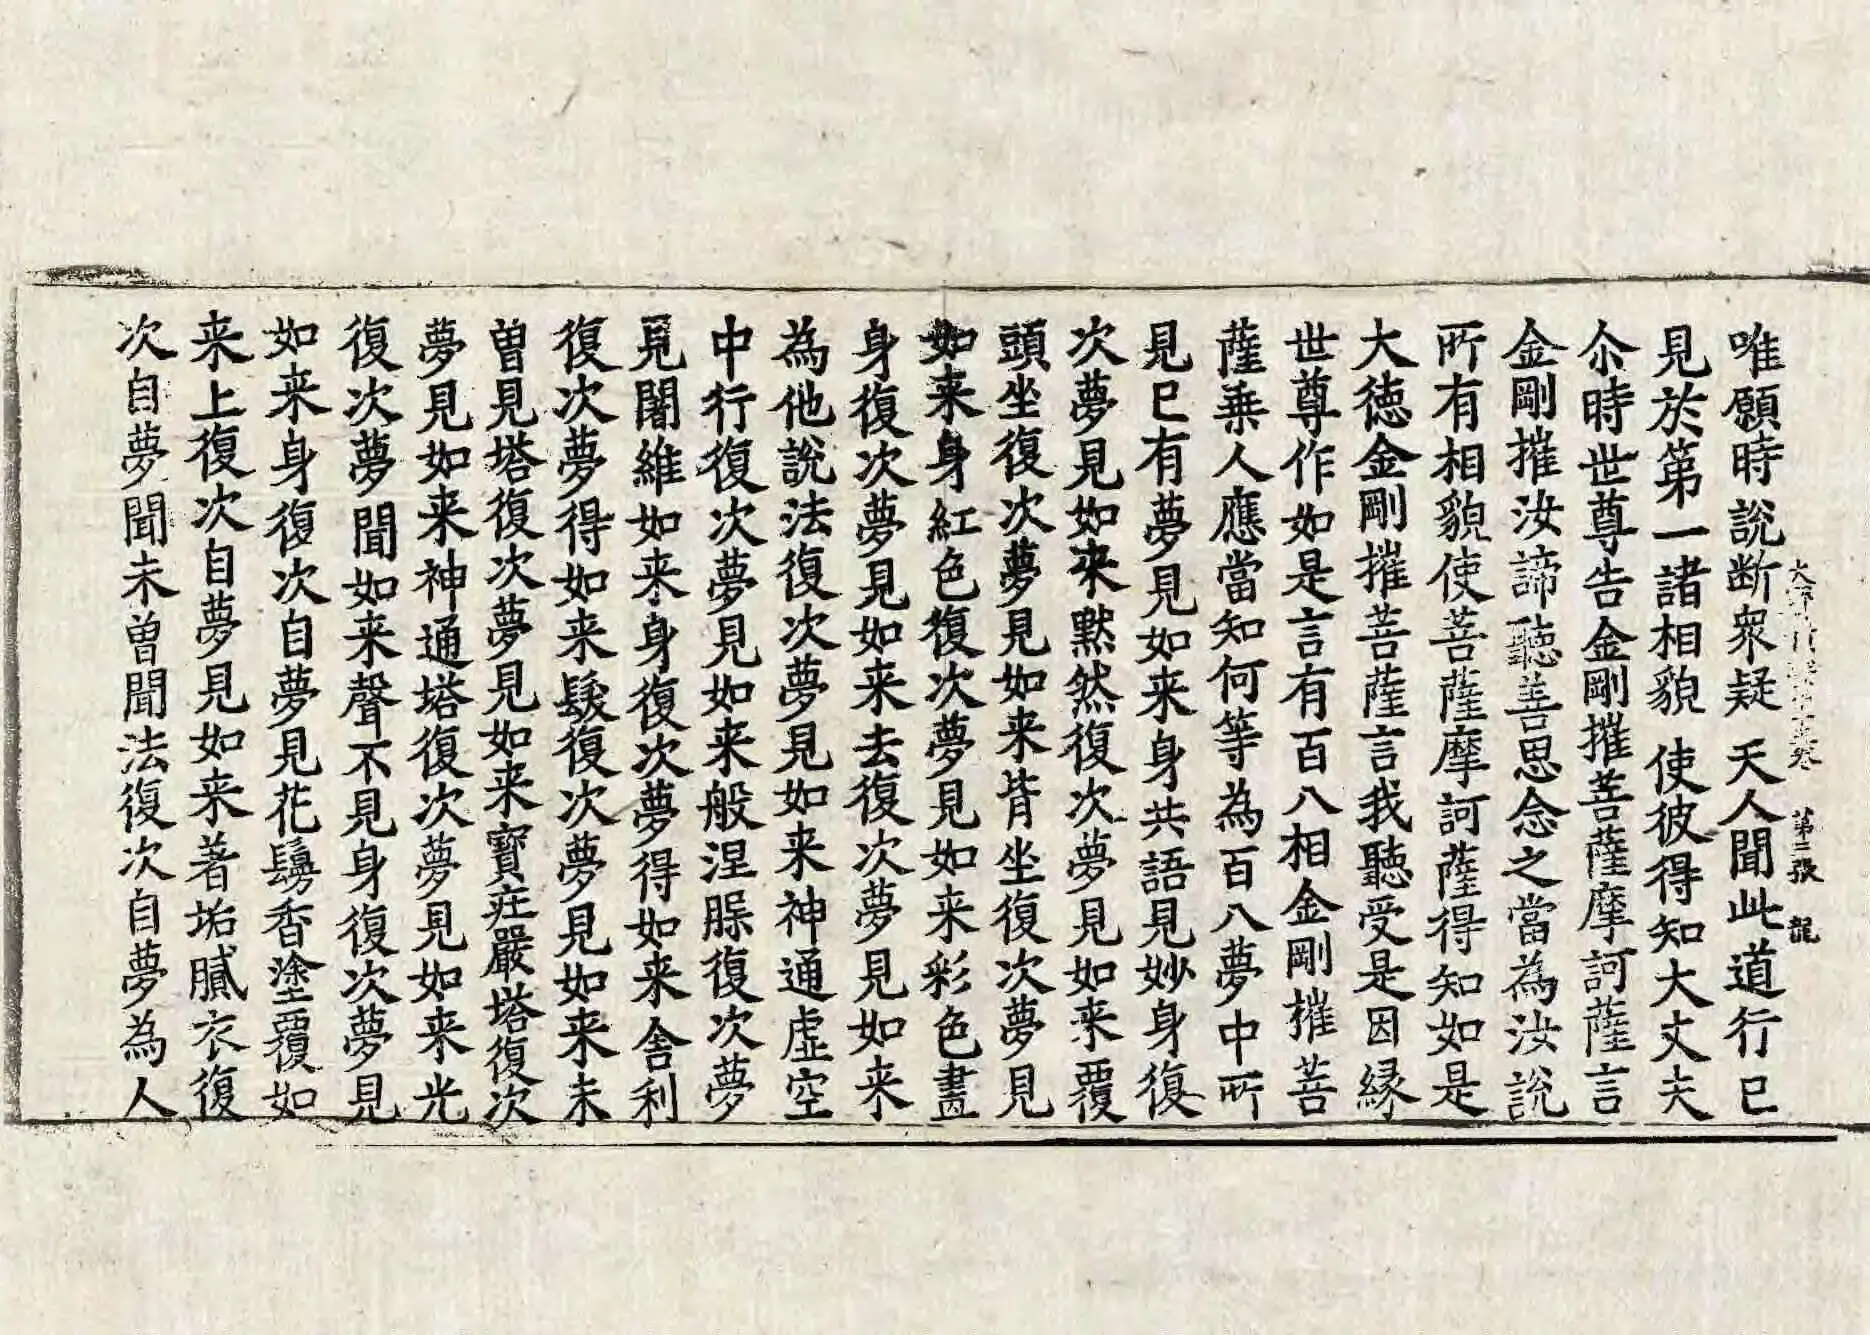 唯願時説断衆疑 天人聞此道行已
見於第一諸相貌 使彼得知大丈夫
尒時世尊告金剛摧菩薩摩訶薩言
金剛摧汝諦聽善思念之當為汝説
所有相貌使菩薩摩訶薩得知如是
大徳金剛摧菩薩言我聽受是因縁
世尊作如是言有百八相金剛摧菩
薩乗人應當知何等為百八夢中所
見已有夢見如来身共語見妙身復
次夢見如来黙然復次夢見如来覆
頭坐復次夢見如来背坐復次夢見
如来身紅色復次夢見如来彩色畫
身復次夢見如来去復次夢見如来
為他説法復次夢見如来神通虚空
中行復次夢見如来般涅槃復次夢
見闍維如来身復次夢得如来舎利
復次夢得如来髮復次夢見如来未
曽見塔復次夢見如来寶莊嚴塔復次
夢見如来神通塔復次夢見如来光
復次夢聞如来聲不見身復次夢見
如来身復次自夢見花鬘香塗覆如
来上復次自夢見如来著垢膩衣復
次自夢聞未曽聞法復次自夢為人
第二張 龍